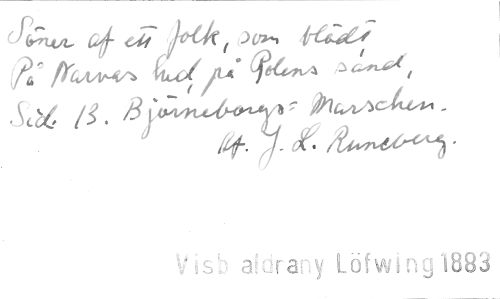 Söner af ett folk, som blödt
På Narvas hed, på Polens sand,
Sid. 13. Björneborgs= Marschen.
Af. J. L. Runeberg.
Visb aldrany Löfwing 1883